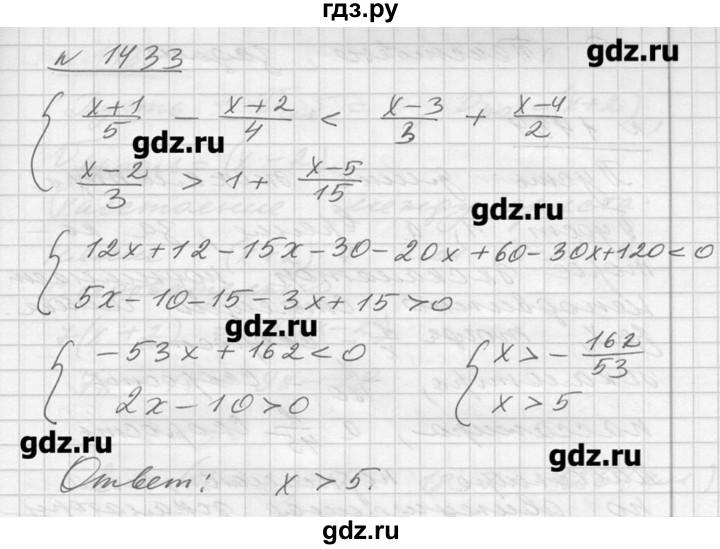 гдз.ру
N 1433
gdz.ru
{ (x+1)/5 − (x+2)/4 < (x−3)/3 + (x−4)/2
gdz.ru
(x−2)/3 > 1 + (x−5)/15
gdz.ru
{ 12x+12−15x−30−20x+60−30x+120<0
5x−10−15−3x+15>0
gdz.ru
{ −53x+162<0 { x>−162/53
2x−10>0 x>5
gdz.ru
gdz.ru
Ответ: x>5.
gdz.ru